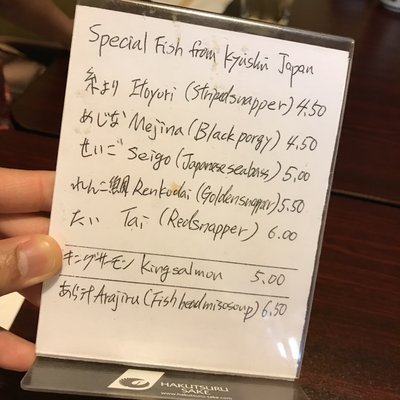 Special Fish from Kyushu Japan
糸より Itoyori (Stripedsnapper) 4.50
めじな Mejina (Blackporgy) 4.50
せいご Seigo (Japanese seabass) 5.00
れんこ鯛 Renkodai (Goldensnapper) 5.50
たい Tai (Redsnapper) 6.00
キングサーモン King salmon 5.00
あら汁 Arajiru (Fish head miso soup) 6.50
HAKUTSURU
SAKE
www.hakutsuru-sake.com